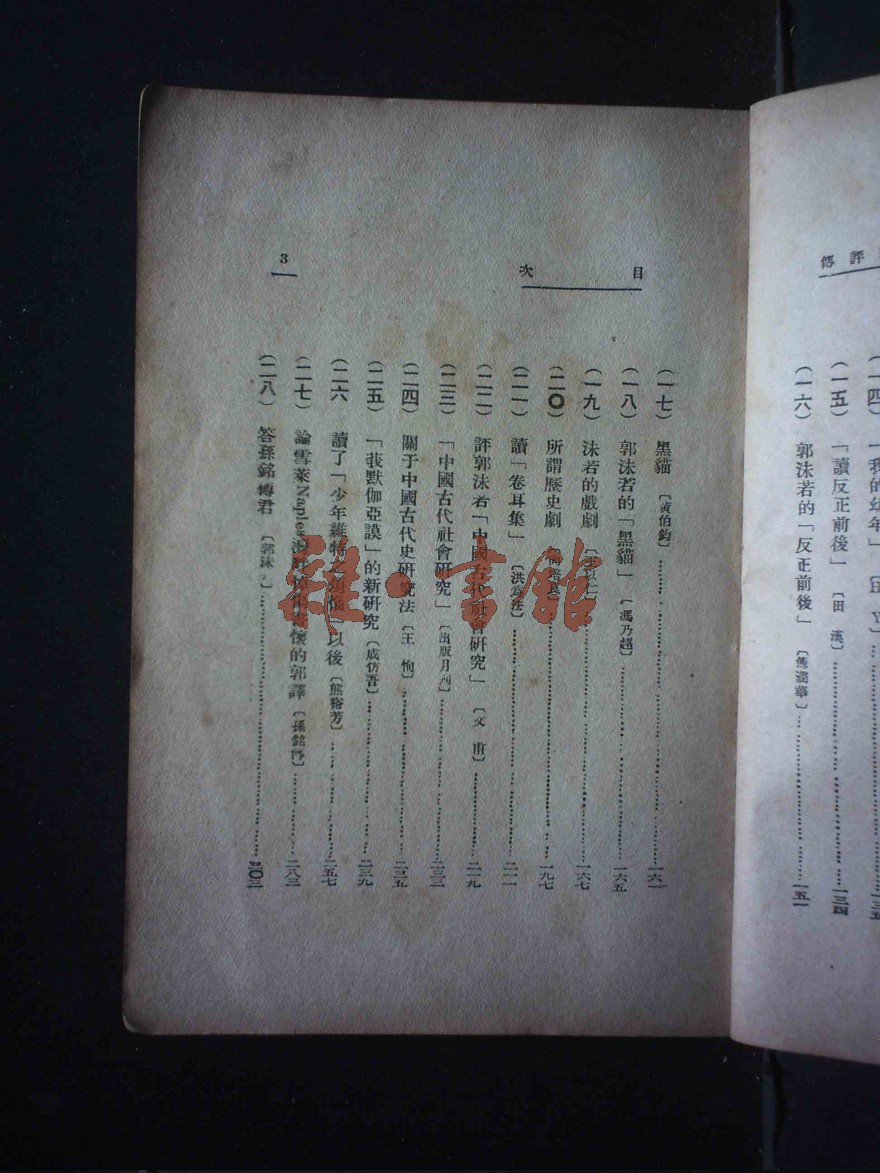 評傳
(一四)「我的幼年」
(一五)「讀反正前後」〔田 漢〕……一三四
(一六)郭沫若的「反正前後」〔傅潤華〕……一五一
目次
(一七)黑貓〔黃伯鈞〕……一六一
(一八)郭沫若的「黑貓」〔馮乃超〕……一六五
(一九)沫若的戲劇……一六七
(二〇)所謂歷史劇……一九七
(二一)讀「卷耳集」〔洪為法〕……二一一
(二二)評郭沫若「中國古代社會研究」〔文 甫〕……二一九
(二三)「中國古代社會研究」〔出版月刊〕……二三三
(二四)關于中國古代史研究法〔王 恂〕……二三五
(二五)「莪默伽亞謨」的新研究〔成仿吾〕……二三九
(二六 讀了「少年維特之以後〔熊裕芳〕……二五七
(二七)論雪萊Naples的郭譯〔孫銘傳〕……二八三
(二八)答孫銘傳君〔郭沫〕……三〇三
3
雜·書館